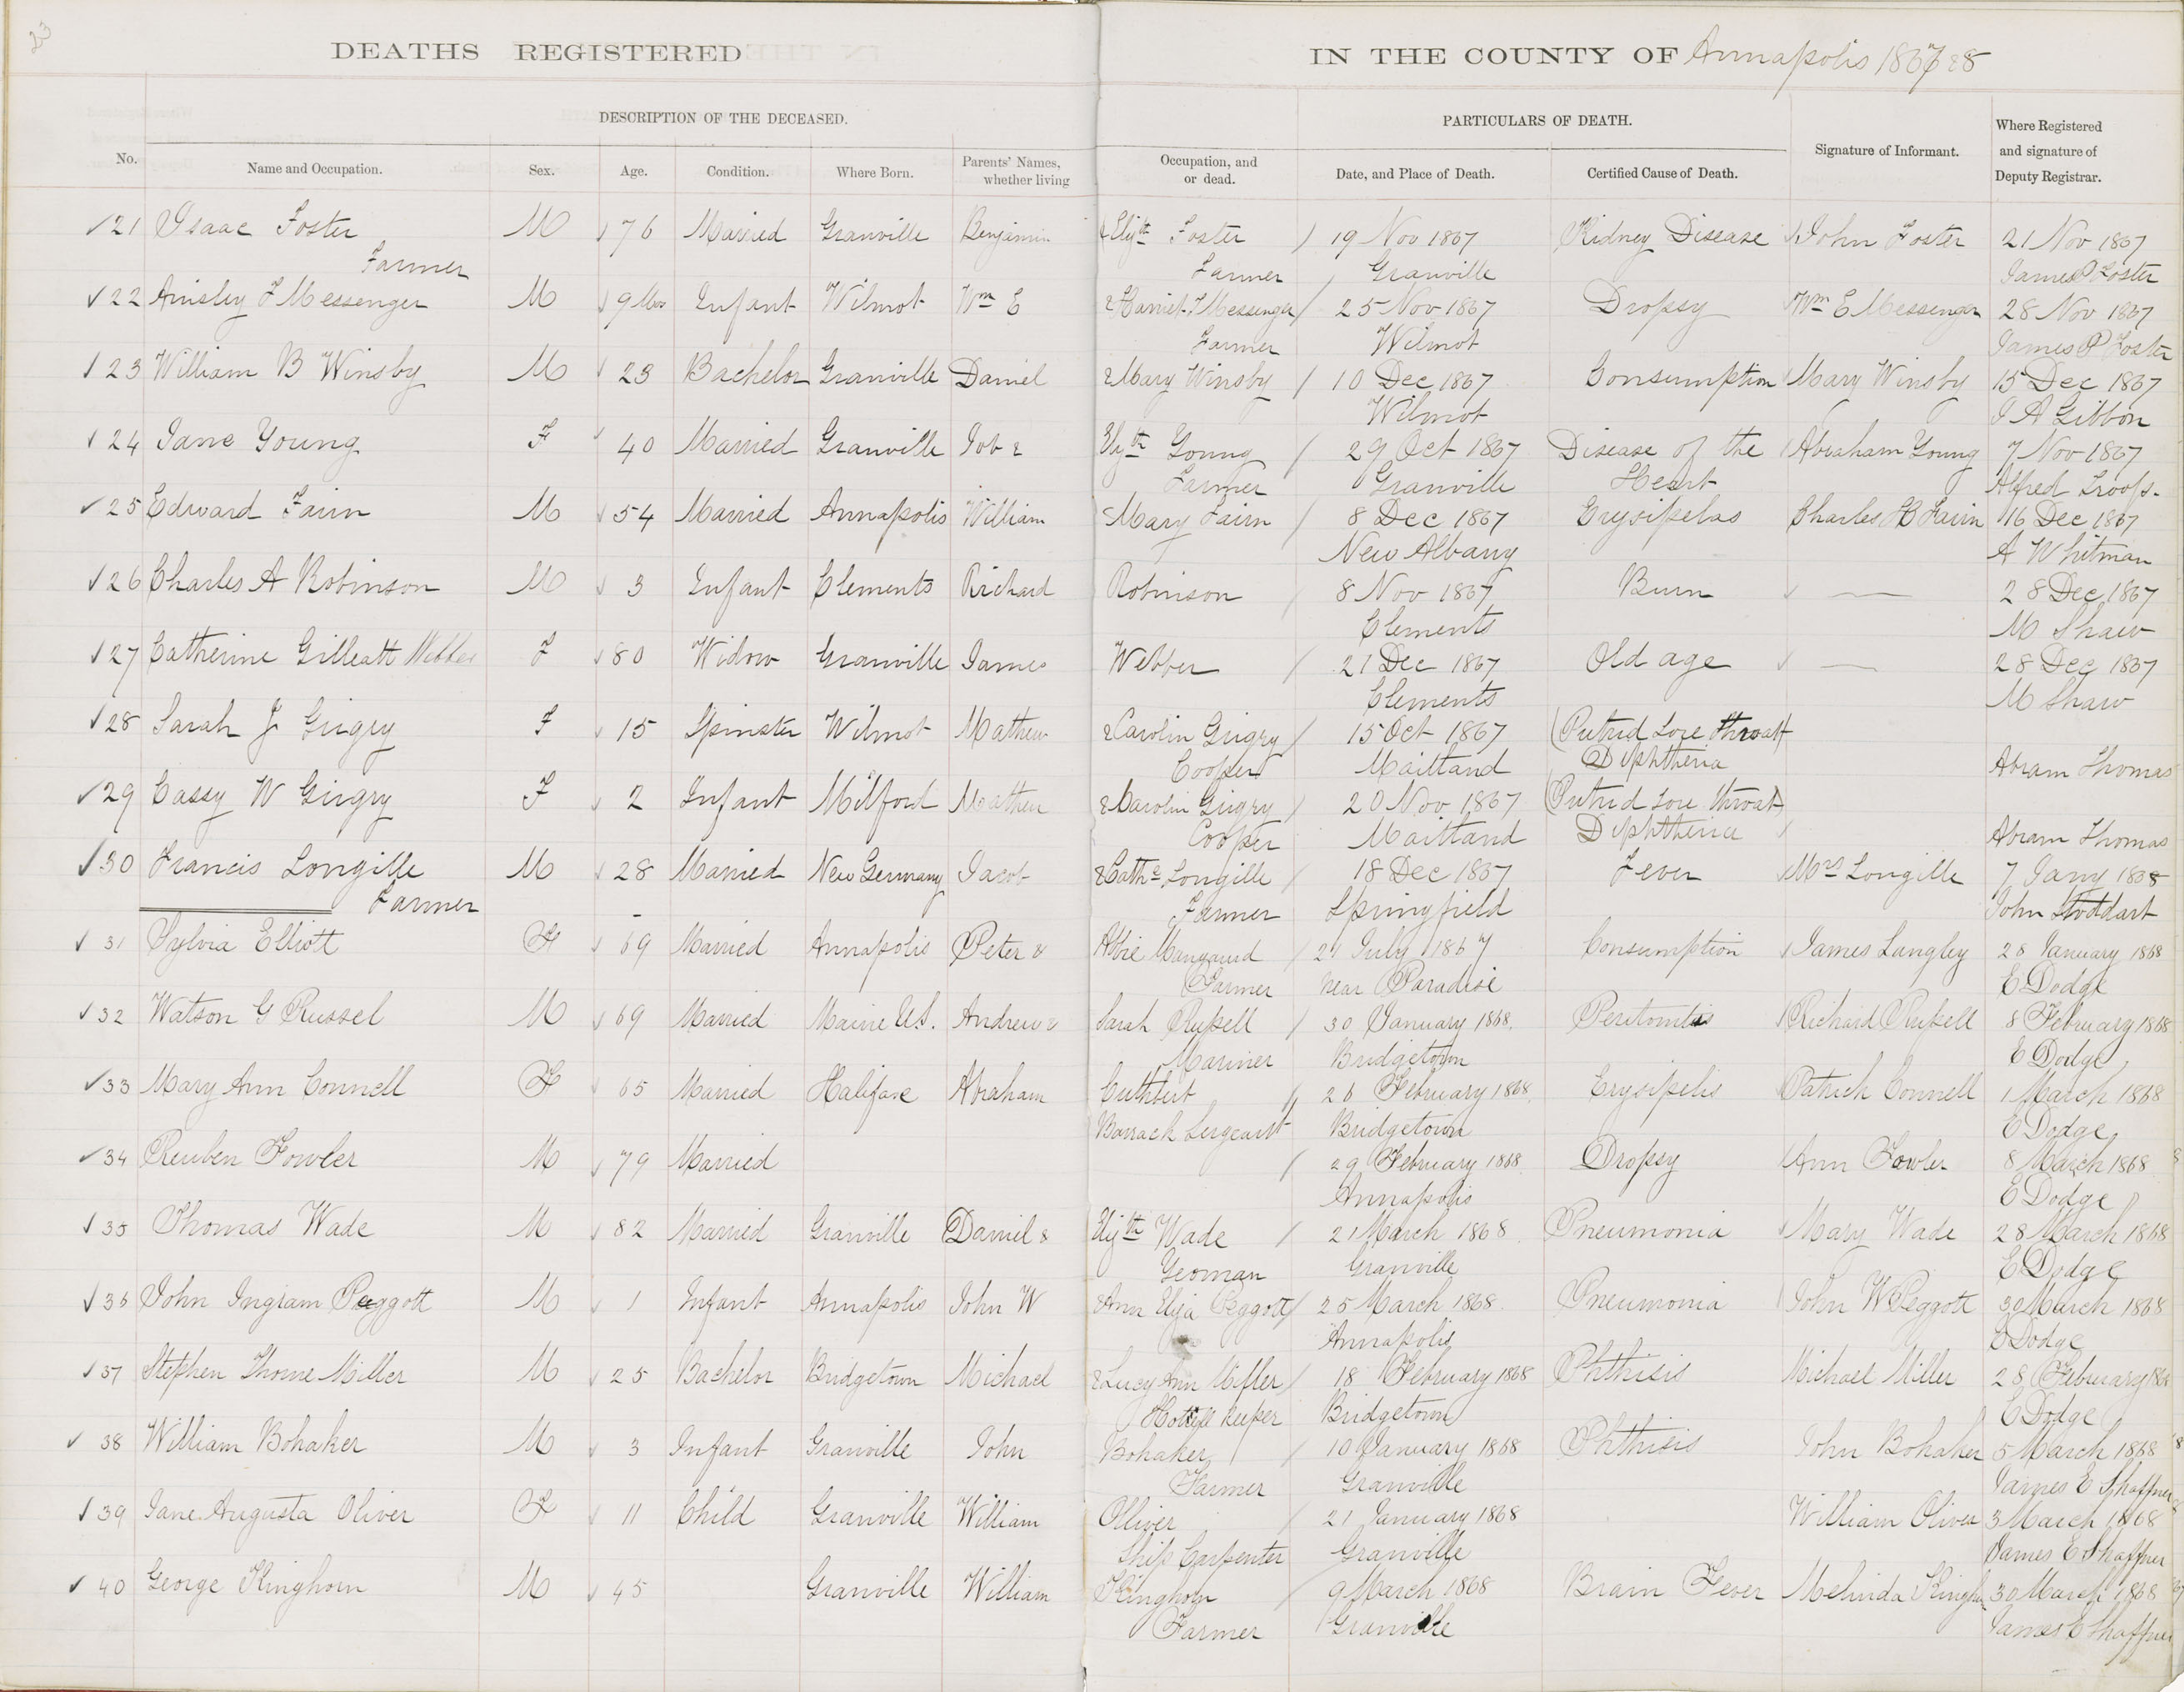 23
DEATHS REGISTERED IN THE COUNTY OF Annapolis 1867 & 8
DESCRIPTION OF THE DECEASED. PARTICULARS OF DEATH.
No. Name and Occupation. Sex. Age. Condition. Where Born. Parents' Names, whether living Occupation, and or dead. Date, and Place of Death. Certified Cause of Death. Signature of Informant. Where Registered and signature of Deputy Registrar.
21 Isaac Foster M 76 Married Granville Benjamin & Elizth Foster 19 Nov 1867 Kidney Disease John Foster 21 Nov 1867
Farmer Farmer Granville James P Foster
22 Ainsley F Messenger M 9 Mos Infant Wilmot Wm E & Harriet F Messenger 25 Nov 1867 Dropsy Wm E Messenger 28 Nov 1867
Farmer Wilmot James P Foster
23 William B Winsby M 23 Bachelor Granville Daniel & Mary Winsby 10 Dec 1867 Consumption Mary Winsby 15 Dec 1867
Wilmot J A Gibbon
24 Jane Young F 40 Married Granville Job & Elizth Young 29 Oct 1867 Disease of the Abraham Young 7 Nov 1867
Farmer Granville Heart Alfred Troop.
25 Edward Fairn M 54 Married Annapolis William & Mary Fairn 8 Dec 1867 Erysipelas Charles H Fairn 16 Dec 1867
New Albany A Whitman
26 Charles A Robinson M 3 Infant Clements Richard Robinson 8 Nov 1867 Burn — 28 Dec 1867
Clements M Shaw
27 Catherine Gilleatt Webber F 80 Widow Granville James Webber 21 Dec 1867 Old age — 28 Dec 1867
Clements M Shaw
28 Sarah J Grigry F 15 Spinster Wilmot Mathew & Carolin Grigry 15 Oct 1867 (Putrid Sore Throat
Cooper Maitland Diphtheria Abram Thomas
29 Cassy W Grigry F 2 Infant Milford Mathew & Carolin Grigry 20 Nov 1867 (Putrid Sore Throat)
Cooper Maitland Diphtheria Abram Thomas
30 Francis Longille M 28 Married New Germany Jacob & Cathe Longille 18 Dec 1867 Fever Mrs Longille 7 Jany 1868
Farmer Farmer Springfield John Stoddart
31 Sylvia Elliott F 69 Married Annapolis Peter & Abbie 21 July 1867 Consumption James Langley 28 January 1868
Farmer near Paradise E Dodge
32 Watson G Russel M 69 Married Maine U.S. Andrew & Sarah Russell 30 January 1868. Peritonitis Richard Russell 8 February 1868
Mariner Bridgetown E Dodge
33 Mary Ann Connell F 65 Married Halifax Abraham Cuthbert 26 February 1868. Erysipelis Patrick Connell 1 March 1868
Barrack Sergeant Bridgetown E Dodge
34 Reuben Fowler M 79 Married 29 February 1868. Dropsy Ann Fowler 8 March 1868
Annapolis E Dodge
35 Thomas Wade M 82 Married Granville Daniel & Elizth Wade 21 March 1868. Pneumonia Mary Wade 28 March 1868
Yeoman Granville E Dodge
36 John Ingram Peggott M 1 Infant Annapolis John W & Ann Eliza Peggott 25 March 1868. Pneumonia John W Peggott 30 March 1868
Annapolis E Dodge
37 Stephen Thorne Miller M 25 Bachelor Bridgetown Michael & Lucy Ann Miller 18 February 1868 Phthisis Michael Miller 28 February 1868
Hotell keeper Bridgetown E Dodge
38 William Bohaker M 3 Infant Granville John Bohaker 10 January 1868 Phthisis John Bohaker 5 March 1868
Farmer Granville James E Shaffner
39 Jane Augusta Oliver F 11 Child Granville William Olliver 21 January 1868 William Oliver 3 March 1868
Ship Carpenter Granville James E Shaffner
40 George Kinghorn M 45 Granville William Kinghorn 9 March 1868 Brain Fever Melinda Kinghorn 30 March 1868
Farmer Granville James E Shaffner